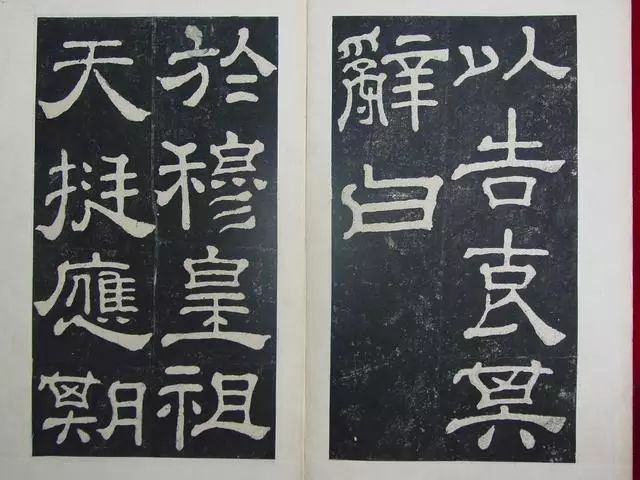 以告哀其
辭曰
於穆皇祖
天挺應期